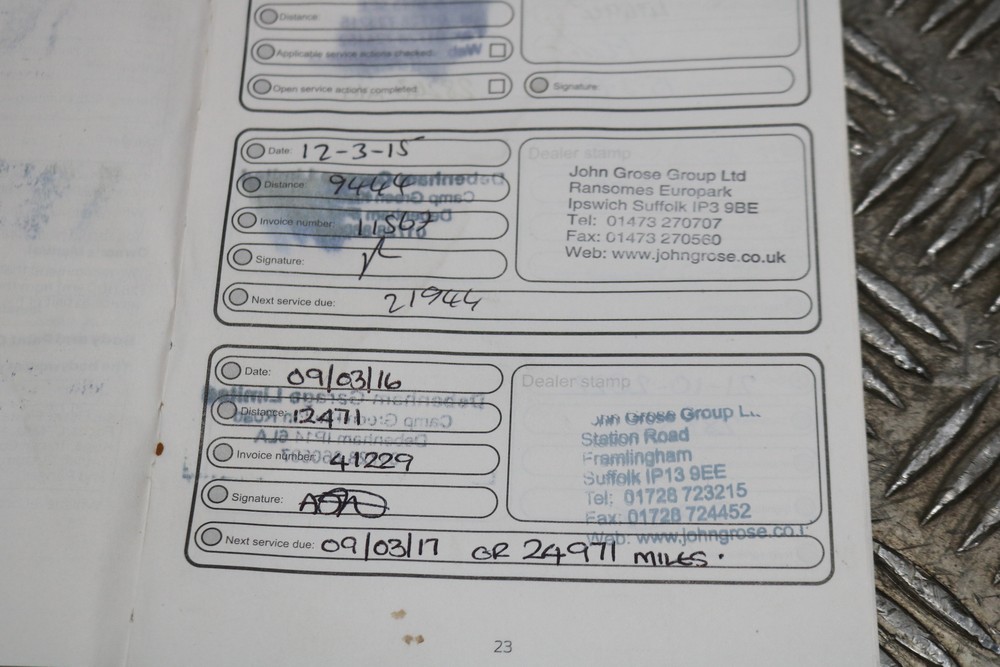 Distance:
Applicable service actions checked:
Open service actions completed:
Signature:
Date: 12-3-15
Distance: 9444
Invoice number: 11568
Signature:
Next service due: 21944
Dealer stamp
John Grose Group Ltd
Ransomes Europark
Ipswich Suffolk IP3 9BE
Tel: 01473 270707
Fax: 01473 270560
Web: www.johngrose.co.uk
Date: 09/03/16
Distance: 12471
Invoice number: 41229
Signature:
Next service due: 09/03/17 OR 24971 MILES.
Dealer stamp
Grose Group
Station Road
Framlingham
Suffolk IP13 9EE
Tel: 01728 723215
Fax: 01728 724452
Web: www.johngrose.co.
23